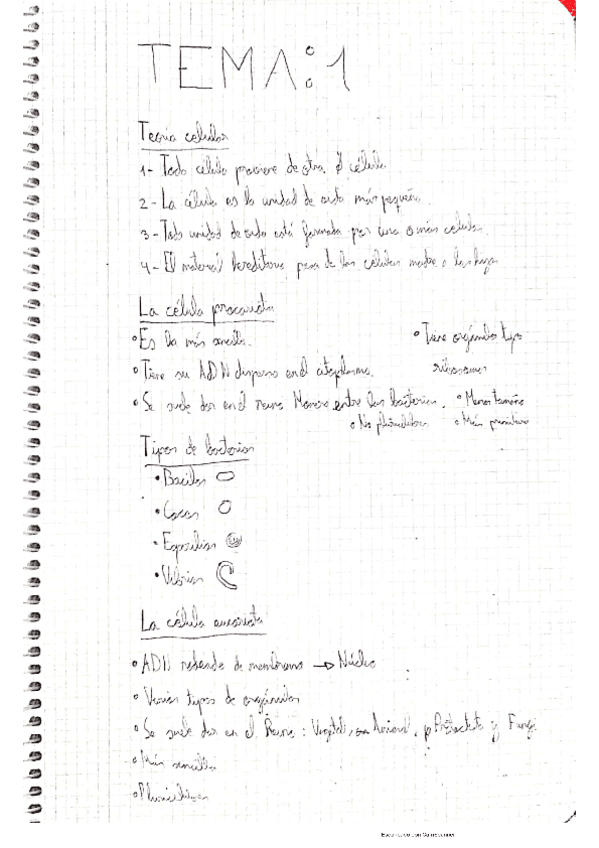 TEMA: 1
Teoria celular
1- Toda célula proviene de otra célula
2- La célula es la unidad de vida más pequeña.
3- Toda unidad de vida está formada por una o más celulas.
4- El material hereditario pasa de las células madre a las hijas
La célula procariota
Es la más sencilla.
Tiene orgánulos tipo
ribosomas
Tiene su ADN disperso en el citoplasma.
Se suele dar en el reino Monera entre las bacterias.
Menor tamaño
No pluricelulares
Más primitiva
Tipos de bacterias
Bacilos
Cocos
Espirilos
Vibrios
La célula eucariota
ADN rodeado de membrana → Núcleo
Varios tipos de orgánulos
Se suele dar en el Reino: Vegetal, Animal, Protoctista y Fungi
Más sencilla
Pluricelulares
Escaneado con CamScanner